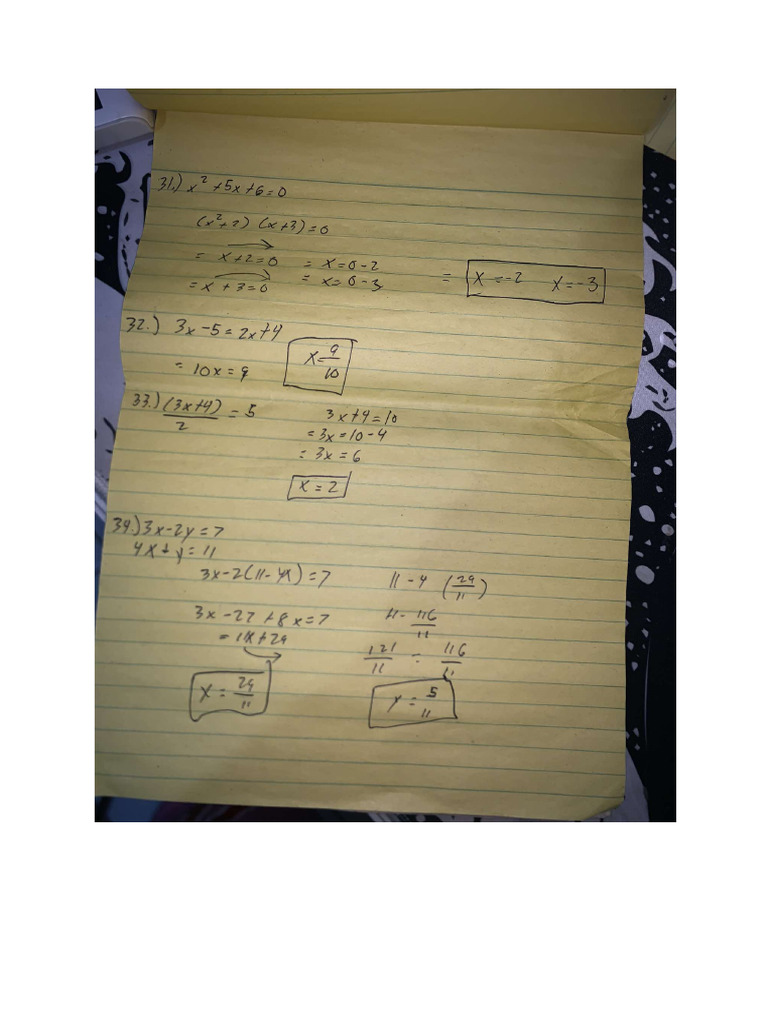 31.) x² + 5x + 6 = 0
(x² + 2) (x + 3) = 0
= x + 2 = 0 = x = 0 - 2
= x + 3 = 0 = x = 0 - 3 = x = -2 x = -3
32.) 3x - 5 = 2x + 4
= 10x = 9 x = 9/10
33.) (3x + 4)/2 = 5 3x + 4 = 10
= 3x = 10 - 4
= 3x = 6
x = 2
34.) 3x - 2y = 7
4x + y = 11
3x - 2(11 - 4x) = 7 11 - 4 (29/11)
3x - 22 + 8x = 7 11 - 116/11
= 11x + 29 121/11 - 116/11
x = 29/11 y = 5/11